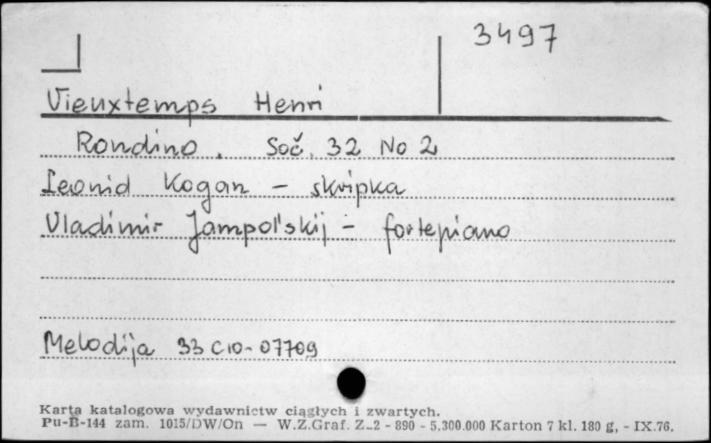 3497
Vieuxtemps Henri
Rondino. Soč. 32 No 2
Leonid Kogan - skripka
Vladimir Jampol'skij - fortepiano
Melodija 33 C10-07709
Karta katalogowa wydawnictw ciągłych i zwartych.
Pu-B-144 zam. 1015/DW/On — W.Z.Graf. Z-2 - 890 - 5.300.000 Karton 7 kl. 180 g, - IX.76.